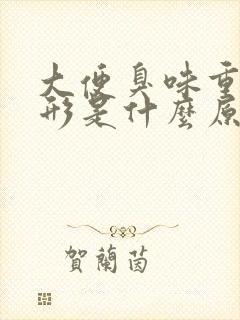 大便臭味重
形是什麼原
賀蘭茵